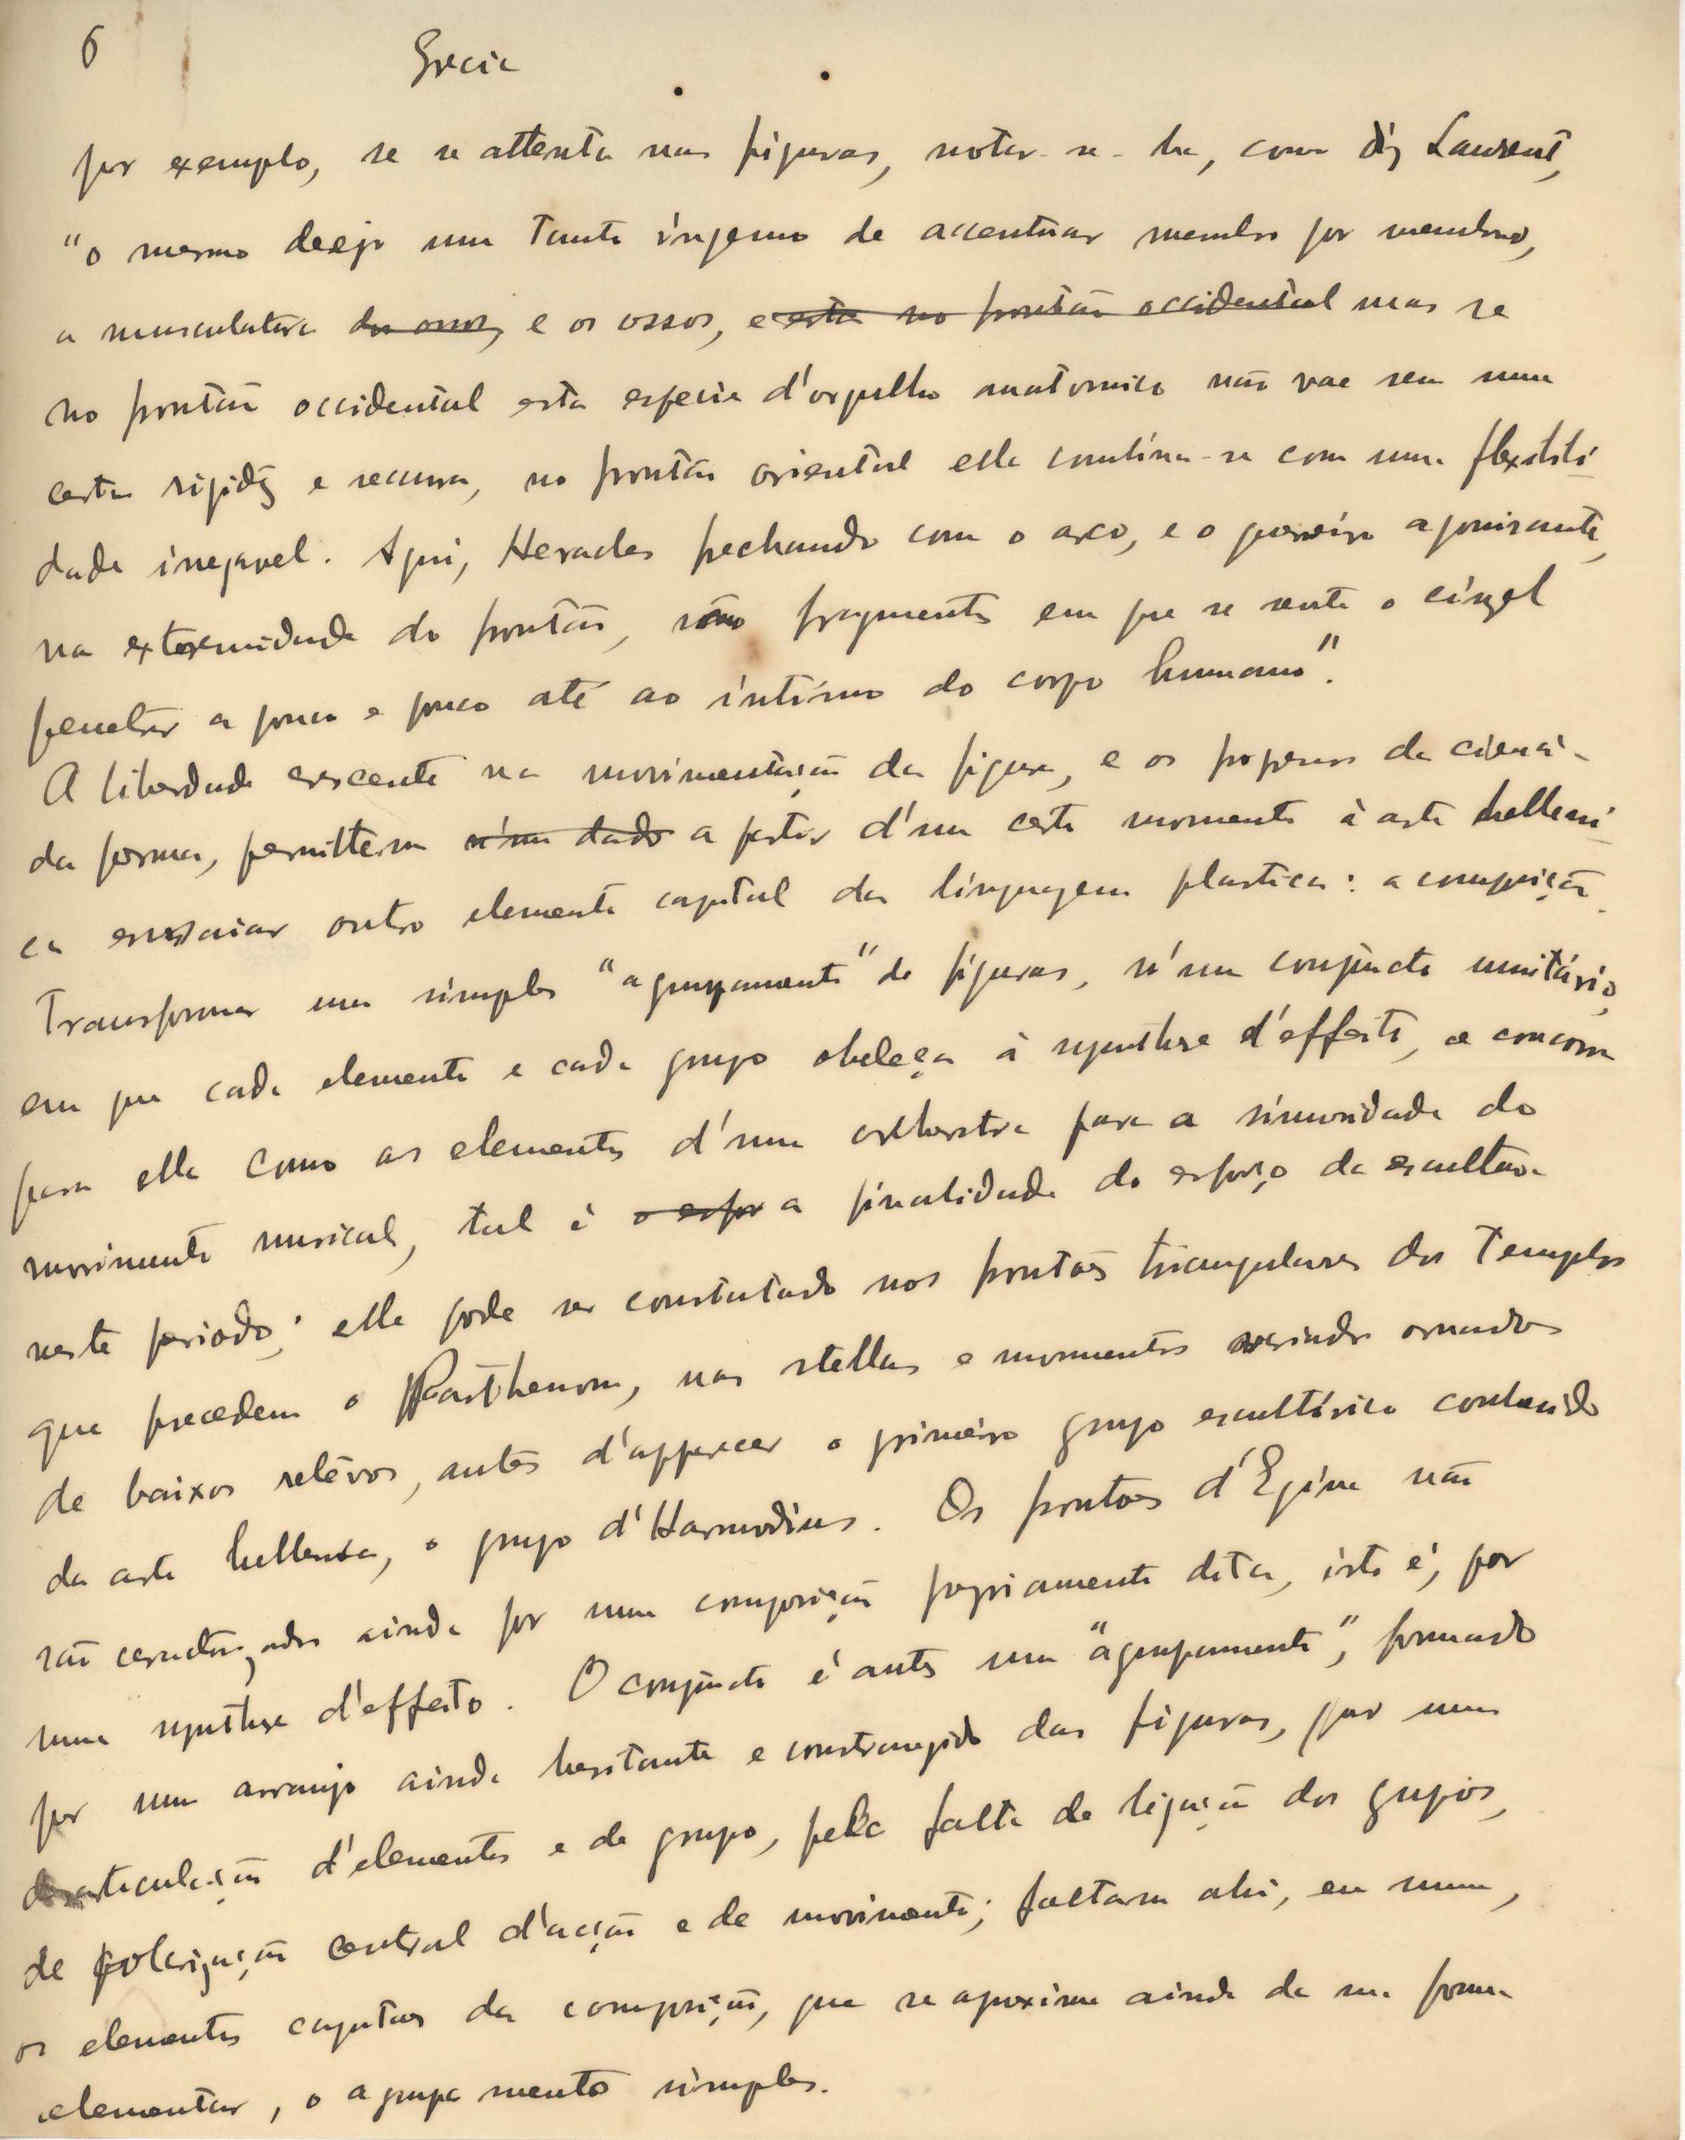 6 Grecia
por exemplo, se se attenta nas figuras, notar-se-ha, como diz Laurent,
"o mesmo desejo um tanto ingenuo de accentuar membro por membro,
a musculatura dos ossos, e os ossos, e esta no frontão occidental mas se
no frontão occidental esta especie d'orgulho anatomico não vae sem uma
certa rigidez e secura, no frontão oriental elle combina-se com uma flexibili-
dade inegavel. Aqui, Heracles frechando com o arco, e o guerreiro agonisante,
na extremidade do frontão, são fragmentos em que se sente o cinzel
penetrar a pouco e pouco até ao intimo do corpo humano".
A liberdade crescente na movimentação da figura, e os progressos da ciencia
da forma, permittem n'um dado a partir d'um certo momento à arte helleni-
ca ensaiar outro elemento capital da linguagem plastica: a composição.
Transformar um simples "agrupamento" de figuras, n'um conjuncto unitário,
em que cada elemento e cada grupo obedeça à synthese d'effeito, e concorra
para ella como os elementos d'uma orchestra para a sinuosidade do
movimento musical, tal é o esfor a finalidade do esforço da escultura
neste periodo; elle pode ser constatado nos frontões triangulares dos Templos
que precedem o Parthenon, nas stellas e monumentos ornados
de baixos relêvos, antes d'apparecer o primeiro grupo escultórico conhecido
da arte hellenica, o grupo d'Harmodius. Os frontões d'Egina não
são caracterizados ainda por uma composição propriamente dita, isto é, por
uma synthese d'effeito. O conjuncto é antes um "agrupamento", formado
por um arranjo ainda hesitante e constrangido das figuras, por uma
desarticulação d'elementos e de grupo, pela falta de ligação dos grupos,
de polarização central d'acção e de movimento; faltam ahi, em suma,
os elementos capitaes da composição, que se aproxima ainda da sua forma
elementar, o agrupamento simples.